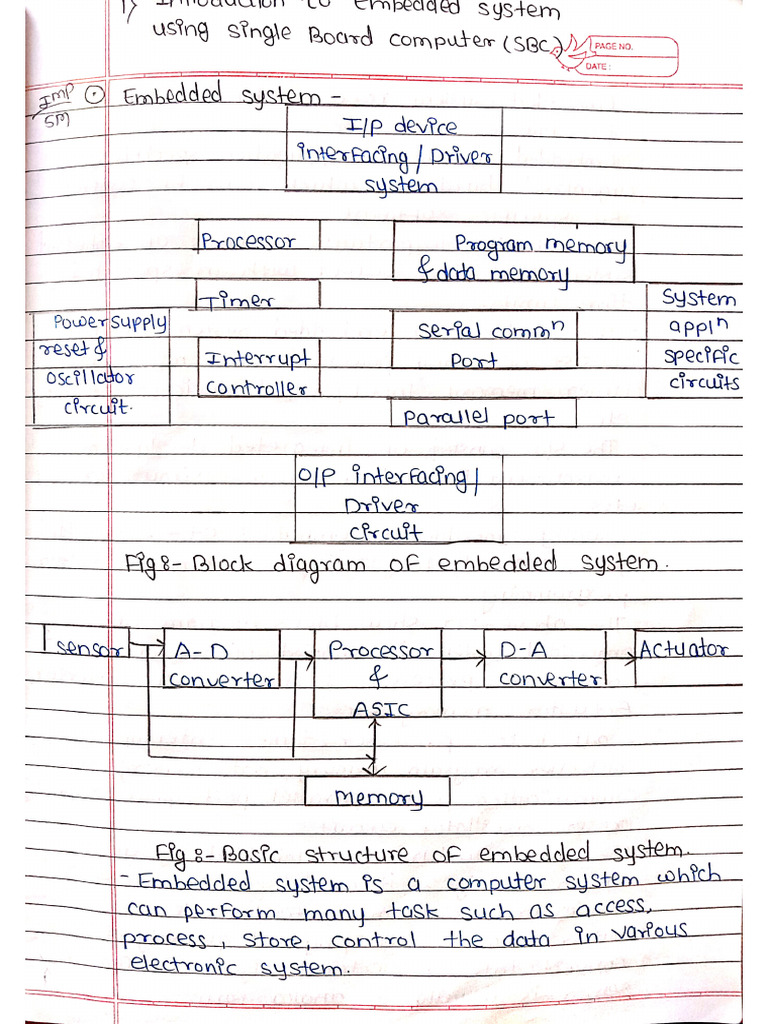 1) Introduction to embedded system
using single Board computer (SBC)
PAGE NO.
DATE:
Imp
5M
Embedded system -
I/P device
interfacing / Driver
system
Processor
Program memory
& data memory
Timer
System
appln
specific
circuits
Power supply
reset &
oscillator
circuit.
Serial commn
Port
Interrupt
controller
Parallel port
O/P interfacing /
Driver
circuit
Fig :- Block diagram of embedded system.
Sensor
A-D
converter
Processor
&
ASIC
D-A
converter
Actuator
memory
Fig :- Basic structure of embedded system.
- Embedded system is a computer system which
can perform many task such as access,
process, store, control the data in various
electronic system.